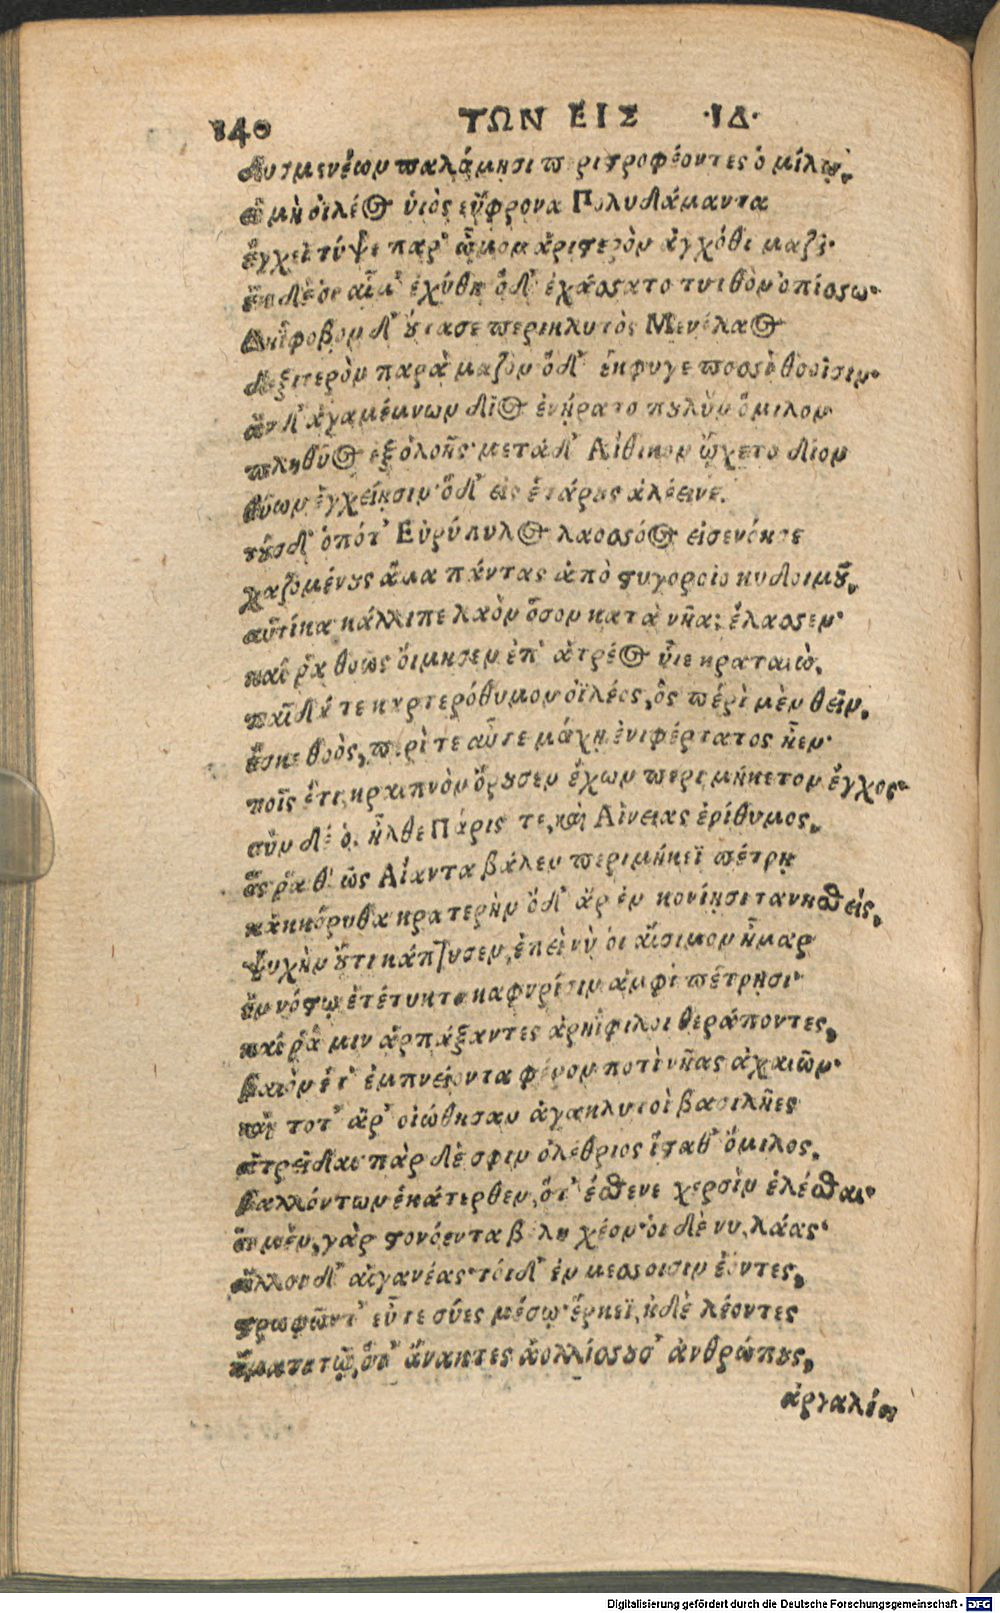 140 ΤΩΝ ΕΙΣ ·ΙΔ·
δυσμενέων παλάμῃσι περιτροφέοντες ὁμίλῳ.
ἀμὴ ὀϊλέος υἱὸς εὔφρονα Πολυδάμαντα
ἔγχεϊ τύψε παρ' ὦμον ἀριστερὸν ἀγχόθι μαζῦ·
ἐκ δέ οι αἷμ' ἐχύθη ὅδ' ἐχάσσατο τυτθὸν ὀπίσσω·
Δηΐφοβον δ' οὔτασε περικλυτὸς Μενέλαος
δεξιτερὸν παρὰ μαζὸν ὅδ' ἔκφυγε ποσσὶ θοοῖσιν·
ἂν δ' ἀγαμέμνων δῖος ἐνήρατο πουλὺν ὅμιλον
πληθύος ἐξ ὀλοῆς· μετὰ δ' Αἴθικον ᾤχετο δῖον
θύων ἐγχείῃσιν· ὅδ' εἰς ἑτάρους ἀλέεινε.
τοὺς δ' ὁπότ' Εὐρύπυλος λαοσσόος εἰσενόησε
χαζομένους ἅμα πάντας ἀπὸ στυγοροῖο κυδοιμοῦ,
αὐτίκα κάλλιπε λαὸν ὅσον κατὰ νῆας ἔλασσεν·
καί ῥα θοῶς οἴμησεν ἐπ' ἀτρέος υἷε κραταιώ.
παῖδά τε καρτερόθυμον ὀϊλέος, ὃς πέρὶ μὲν θεῖν,
ἔσκε θοὸς, περὶ τε αὖτε μάχῃ ἐνιφέρτατος ἦεν·
ποῖς ἔτι κραιπνὸν ὄρουσεν ἔχων περιμήκετον ἔγχος·
σὺν δέ ὁ. ἦλθε Πάρις τε, καὶ Αἰνείας ἐρίθυμος,
ὅς ῥα θ' ὡς Αἴαντα βάλεν περιμήκεϊ πέτρῃ
κὰκ κόρυθα κρατερὴν ὅδ' ἄρ ἐν κονίῃσι τανυσθείς,
ψυχὴν οὔτι κάπυσεν, ἐπεὶ νύ οἱ αἴσιμον ἦμαρ
ἐν νόστῳ ἐτέτυκτο καφηρίσιν ἀμφὶ πέτρῃσι·
καί ῥά μιν ἁρπάξαντες ἀρηΐφιλοι θεράποντες,
βαιὸν ἔτ' ἐμπνείοντα φέρον ποτὶ νῆας ἀχαιῶν·
καὶ τοτ' ἄρ' οἰώθησαν ἀγακλυτοὶ βασιλῆες
ἀτρεῖδαι πὰρ δὲ σφιν ὀλέθριος ἵσταθ' ὅμιλος,
βαλλόντων ἑκάτερθεν, ὅτ' ἔσθενε χερσὶν ἑλέσθαι·
οἱ μὲν, γὰρ στονόεντα βέλη χέον· οἱ δὲ νυ, λάας·
ἄλλοι δ' αἰγανέας· τοὶ δ' ἐν μεσσοισιν ἐόντες,
στρωφῶντ' εὖτε σύες μέσῳ ἕρκεϊ, ἠδὲ λέοντες
ἤματι τῷ, ὅτ' ἄνακτες ἀολλίσσουσ' ἀνθρώπους,
ἀργαλέω